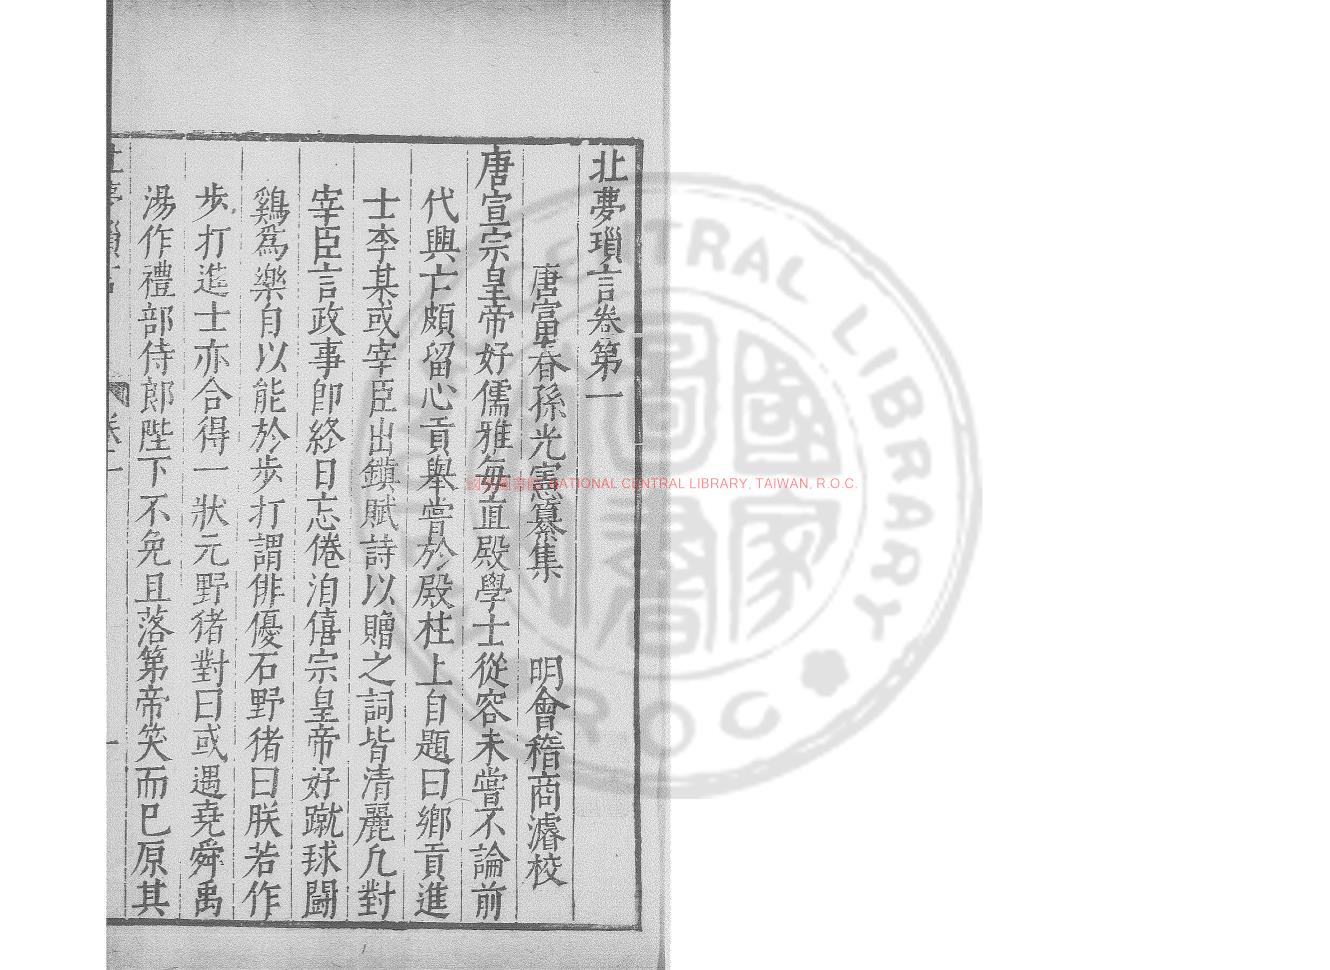 北夢瑣言卷第一
唐富春孫光憲纂集 明會稽商濬校
唐宣宗皇帝好儒雅每直殿學士從容未嘗不論前
代興亡頗留心貢舉嘗於殿柱上自題曰鄉貢進
士李某或宰臣出鎮賦詩以贈之詞皆清麗凡對
宰臣言政事卽終日忘倦洎僖宗皇帝好蹴球鬪
鷄爲樂自以能於步打謂俳優石野猪曰朕若作
步打進士亦合得一狀元野猪對曰或遇堯舜禹
湯作禮部侍郎陛下不免且落第帝笑而已原其
國家圖書館 NATIONAL CENTRAL LIBRARY, TAIWAN, R.O.C.
CENTRAL LIBRARY
R.O.C